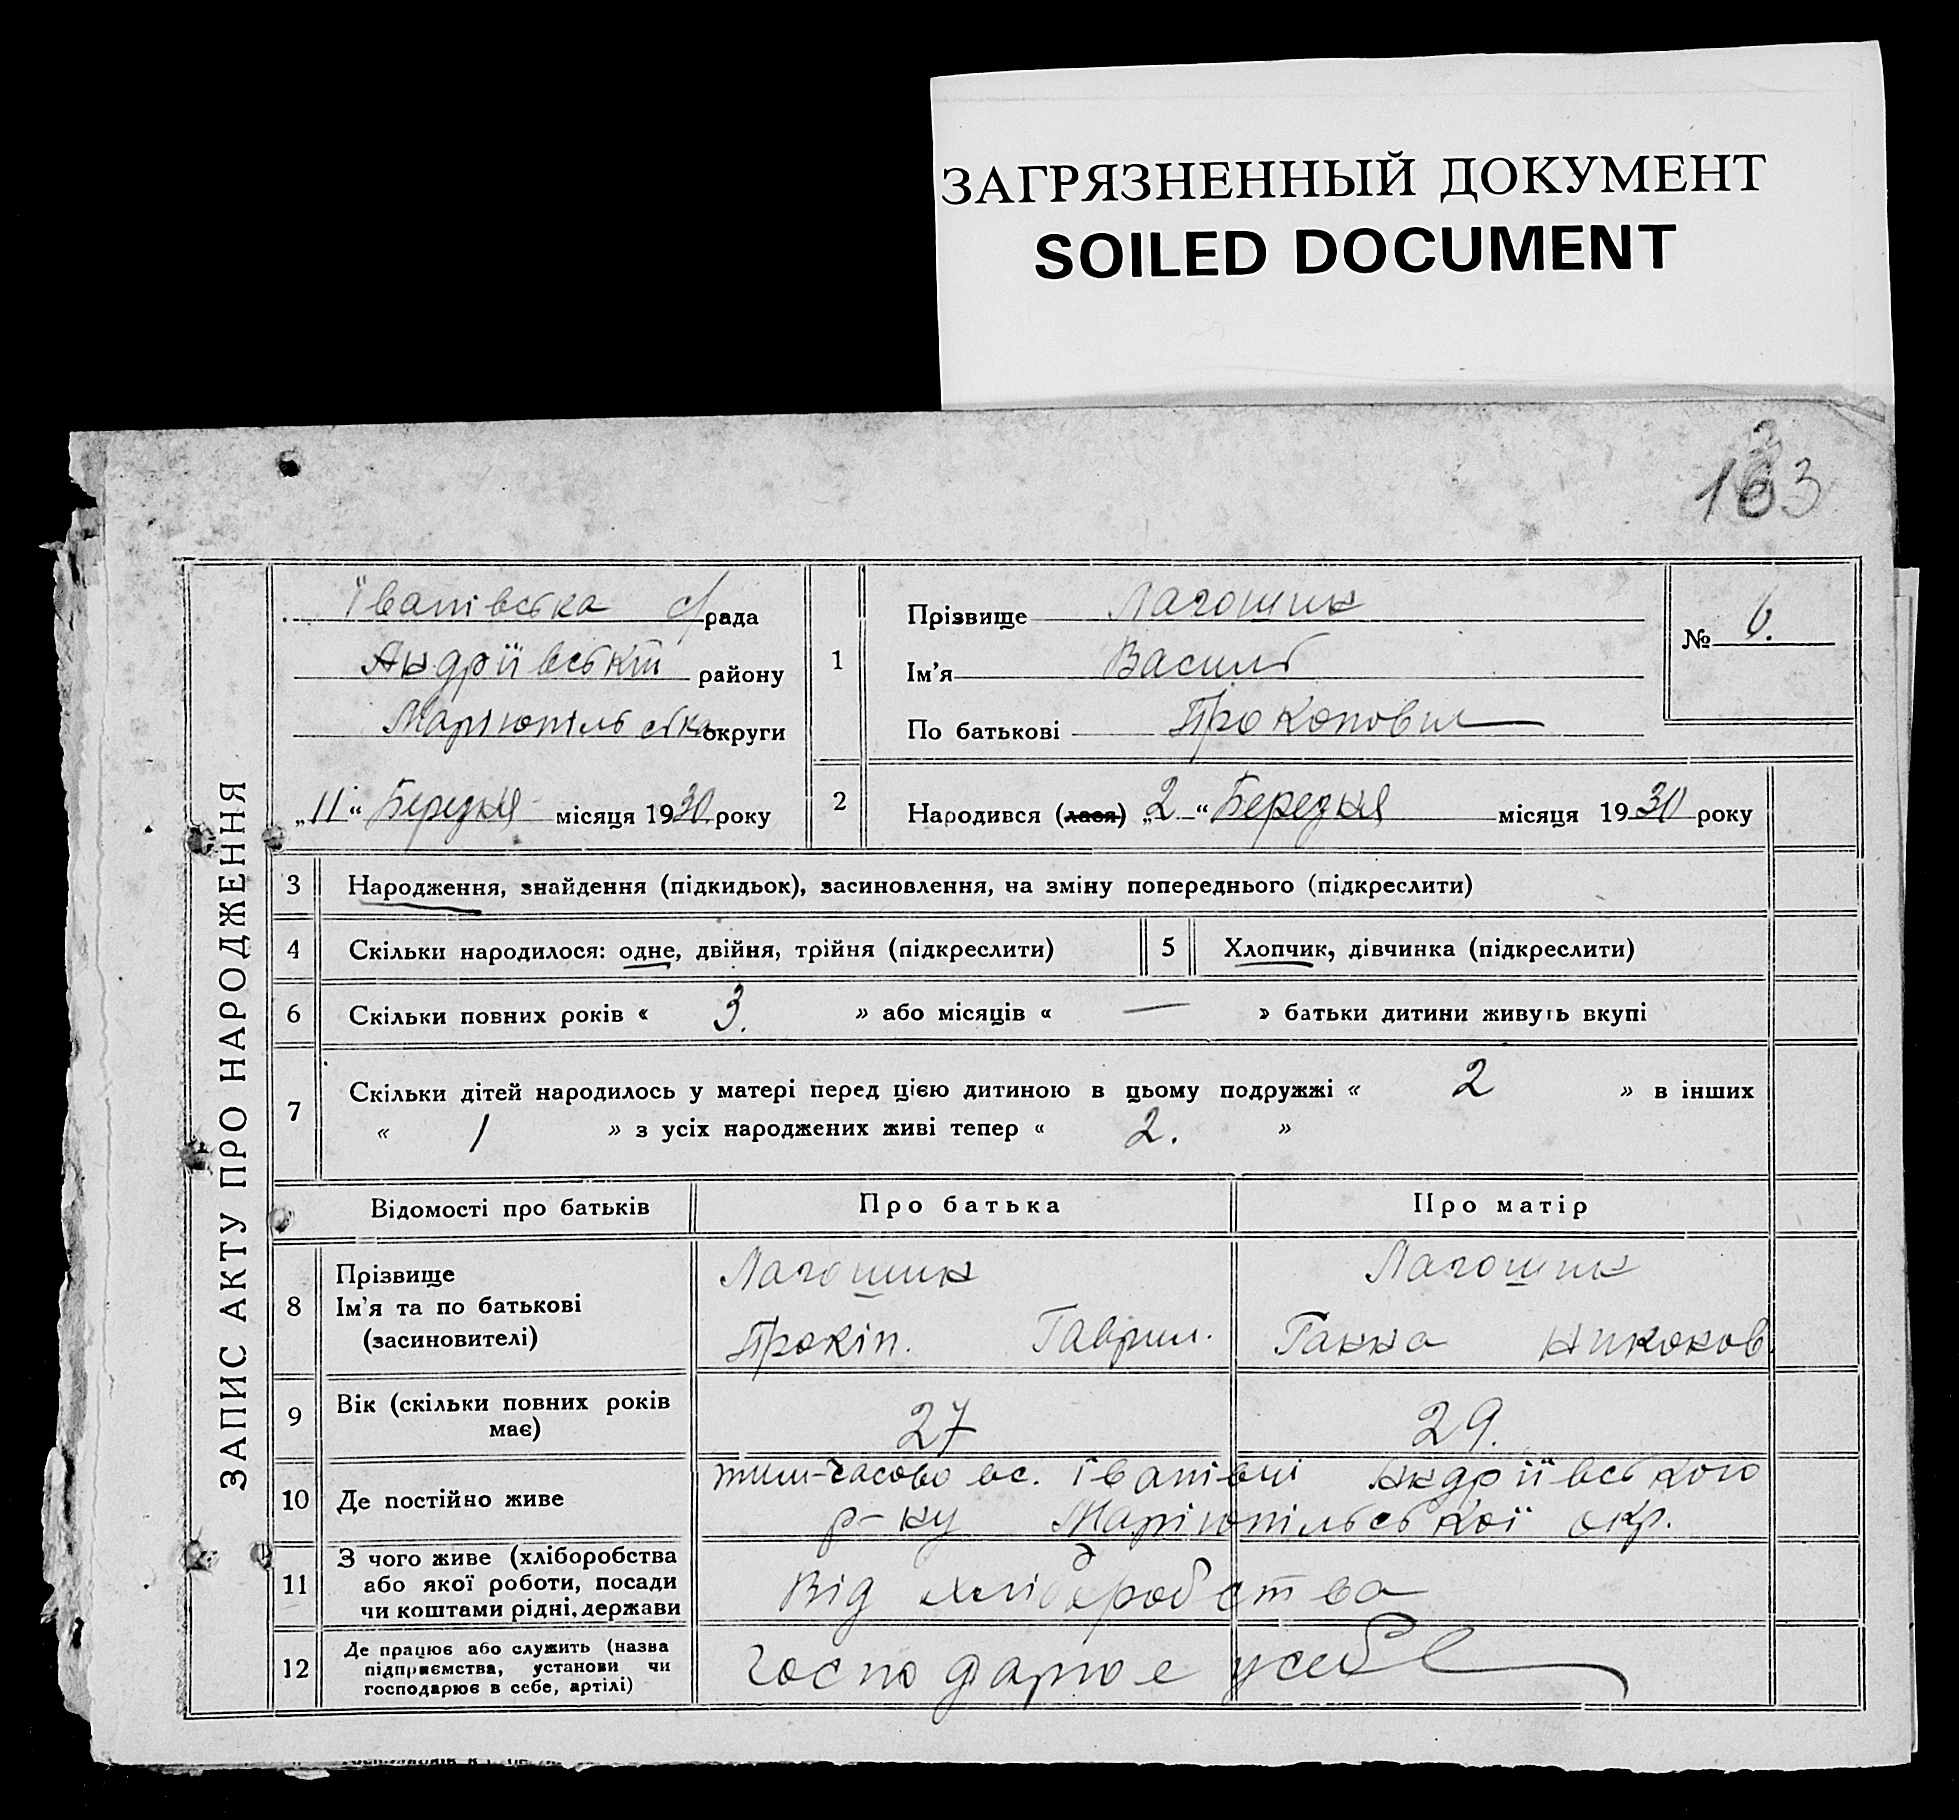 ЗАГРЯЗНЕННЫЙ ДОКУМЕНТ
SOILED DOCUMENT
ЗАПИС АКТУ ПРО НАРОДЖЕННЯ
Іванівська с/рада
Андріївськ району
Маріюпільська округи
„11“ Березня місяця 1930 року
1
Прізвище Лагошин
Ім'я Василь
По батькові Прокопович
№ 6.
2 Народився (лася) „2“ Березня місяця 1930 року
3 Народження, знайдення (підкидьок), засиновлення, на зміну попереднього (підкреслити)
4 Скільки народилося: одне, двійня, трійня (підкреслити) 5 Хлопчик, дівчинка (підкреслити)
6 Скільки повних років « 3. » або місяців « — » батьки дитини живуть вкупі
7 Скільки дітей народилось у матері перед цією дитиною в цьому подружжі « 2 » в інших
« 1 » з усіх народжених живі тепер « 2. »
Відомості про батьків Про батька Про матір
8 Прізвище
Ім'я та по батькові
(засиновителі)
Лагошин
Прокіп. Гаврил.
Лагошин
Ганна Никонов.
9 Вік (скільки повних років
має)
27 29.
10 Де постійно живе
тим-часово вс. Іванівці Андріївського
р-ну Маріюпільської окр.
11 З чого живе (хліборобства
або якої роботи, посади
чи коштами рідні, держави
Від хліборобства
12 Де працює або служить (назва
підприємства, установи чи
господарює в себе, артілі)
господарює усебе